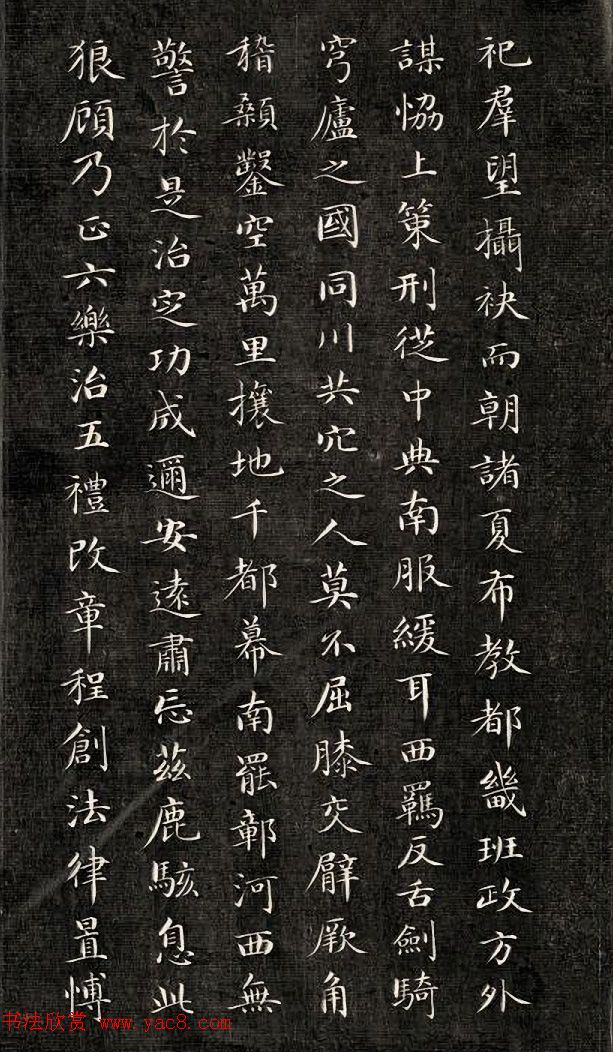 祀羣望攝袂而朝諸夏布教都畿班政方外
謀恊上策刑從中典南服緩耳西羈反舌劍騎
穹廬之國同川共穴之人莫不屈膝交臂厥角
稽顙鑿空萬里攘地千都幕南罷鄣河西無
警於是治定功成邇安遠肅忘茲鹿駭息此
狼顧乃正六樂治五禮改章程創法律置愽
书法欣赏 www.yac8.com